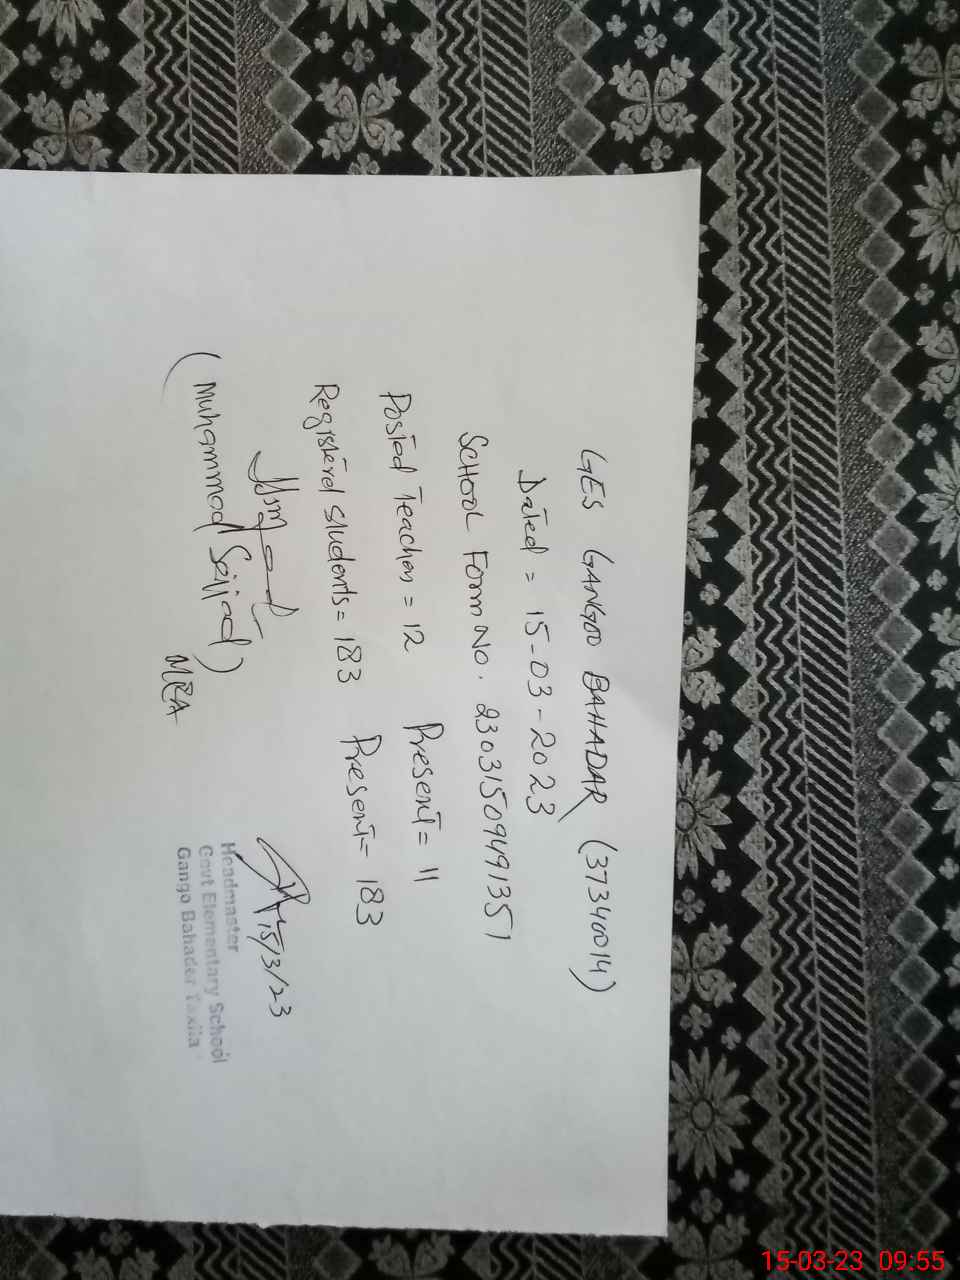 GES GANGOO BAHADAR (37340014)
Dated = 15-03-2023
SCHOOL Form No. 23031509491351
Posted Teachers = 12 Present = 11
Registered Students = 183 Present = 183
(Muhammad Sajjad)
MEA
15/3/23
Headmaster
Govt Elementary School
Gango Bahader Taxila
15-03-23 09:55